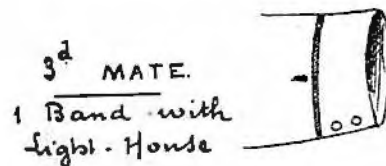 3d MATE.
1 Band with
Light-House